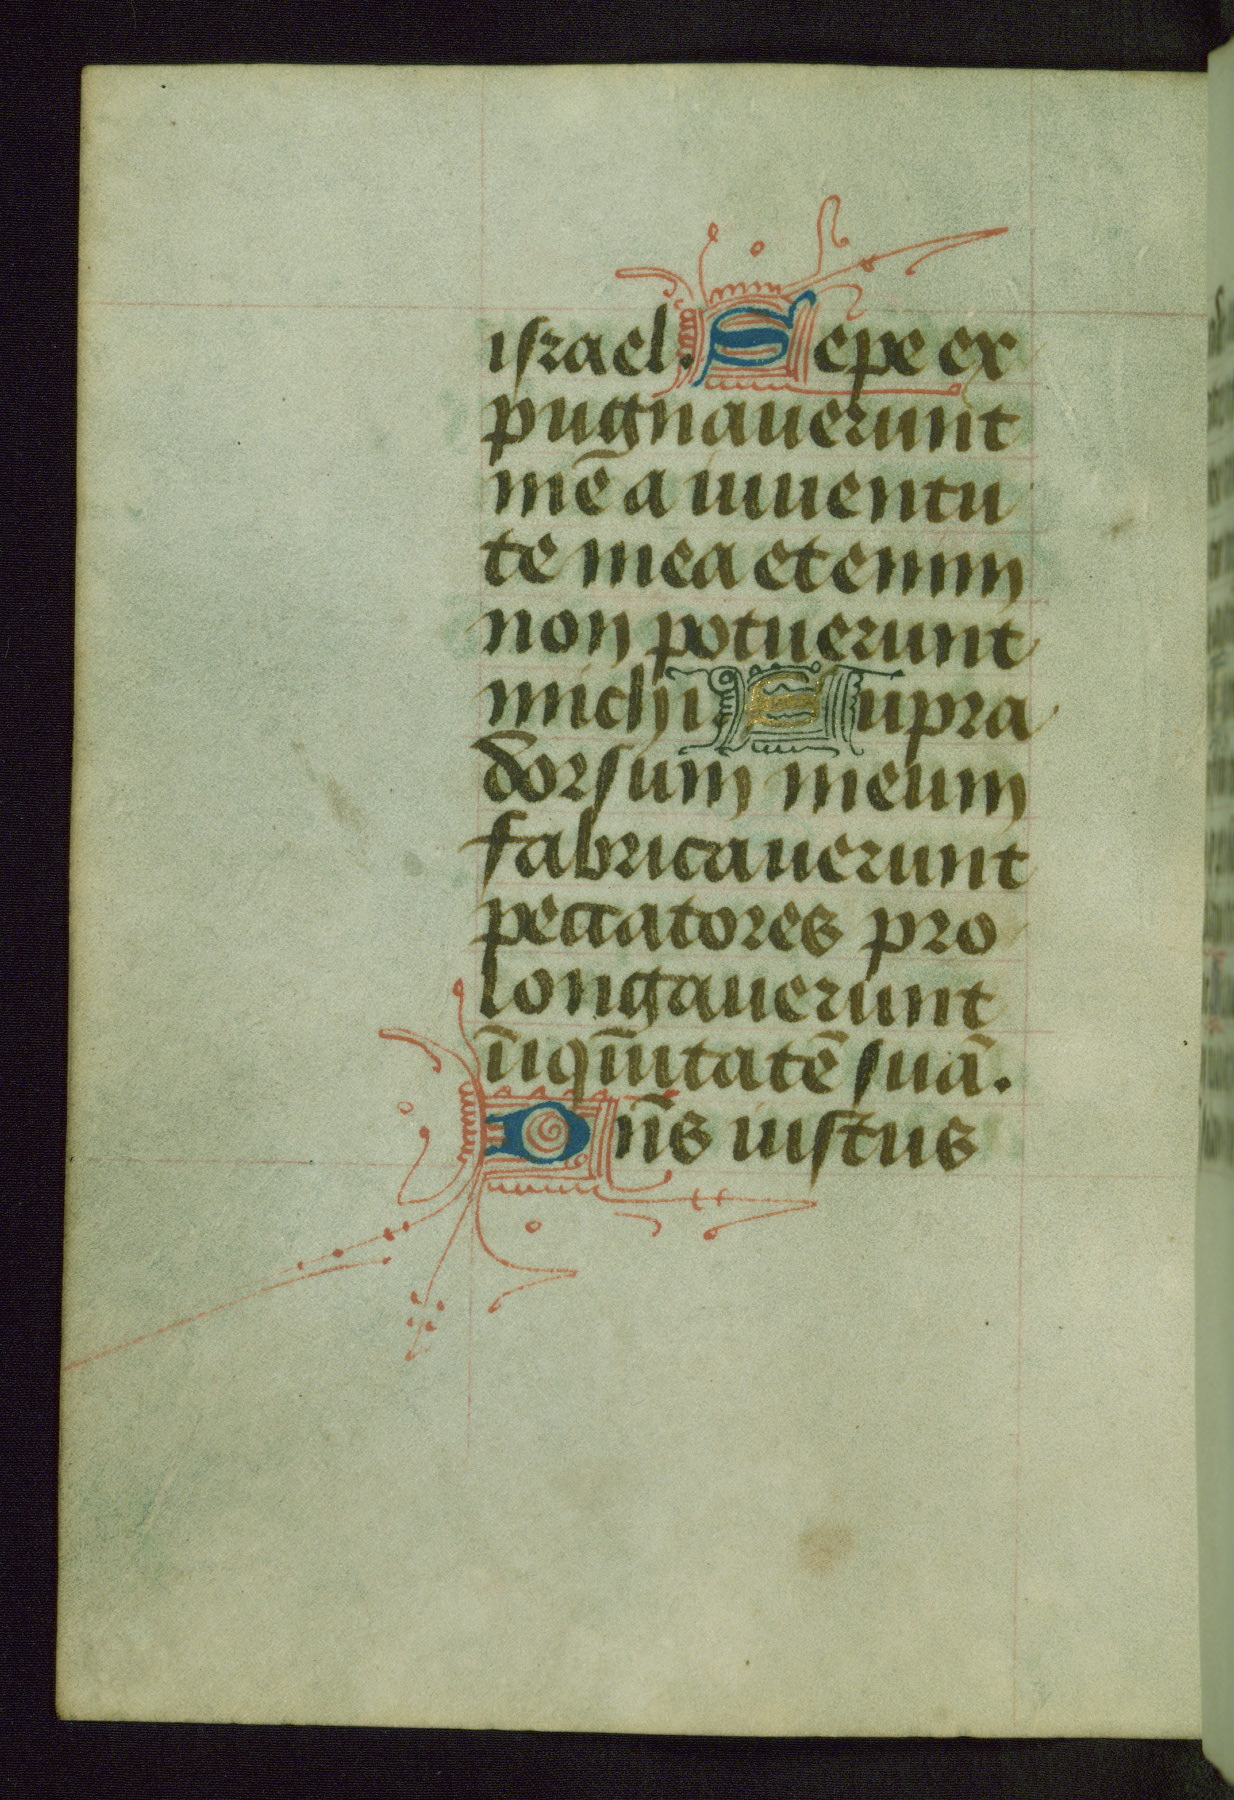 israel. Sepe ex
pugnauerunt
mē a iuuentu
te mea etenim
non potuerunt
michi Supra
dorsum meum
fabricauerunt
peccatores pro
longauerunt
īiq̄uitatē suā.
Dn̄s iustus